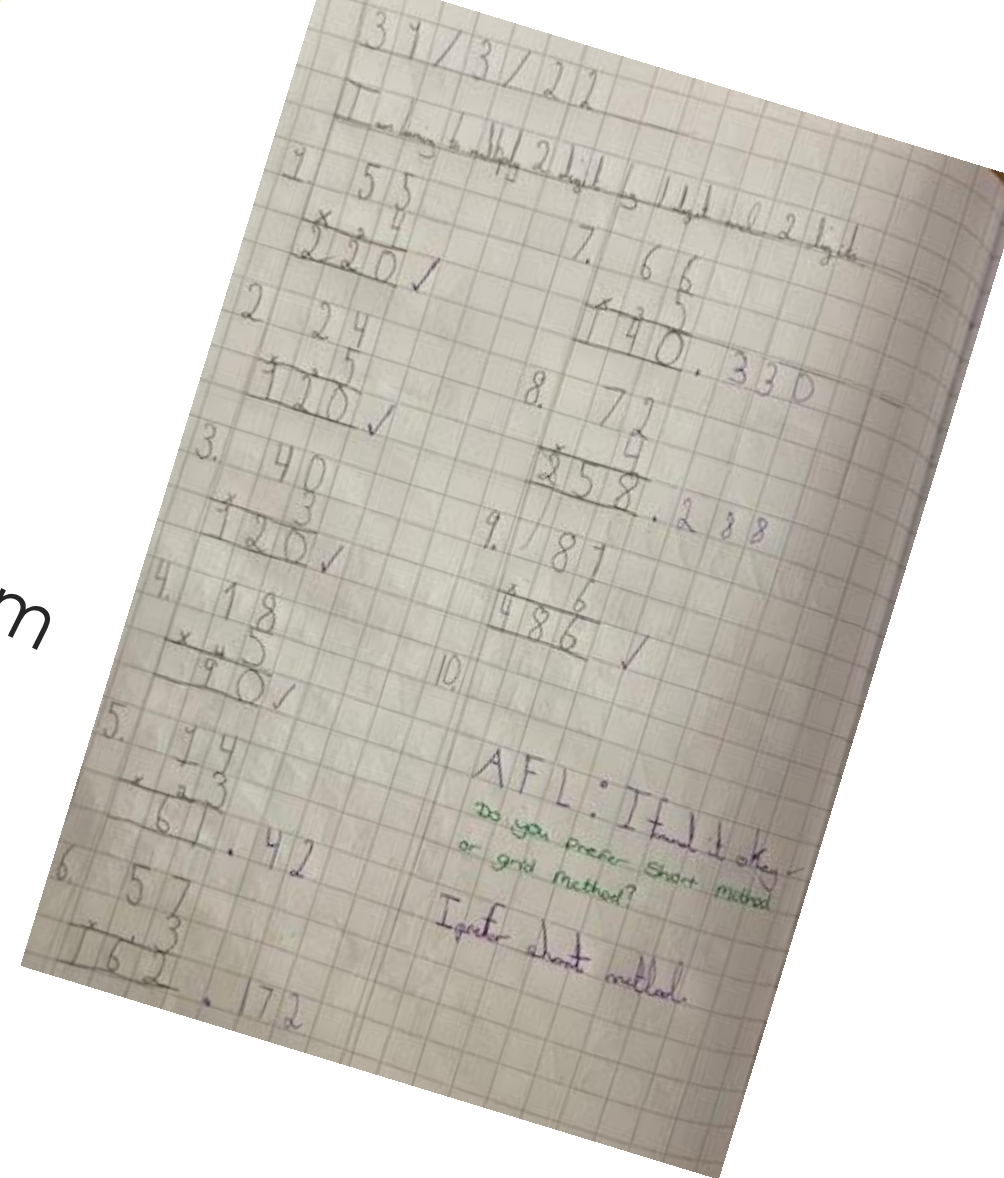 31/3/22
I am learning to multiply 2 digits by 1 digit and 2 digits
1. 55
× 2 4
220 ✓
2 24
× 2 5
120 ✓
3. 40
× 3
120 ✓
4. 18
× 4 5
90 ✓
5. 14
× 2 3
61 . 42
6. 57
× 3
162 . 172
7. 66
× 3 5
140 . 330
8. 72
× 4
258 . 288
9. 81
× 6
486 ✓
10.
AFL: I found it okay
Do you prefer short method
or grid method?
I prefer short method.
m